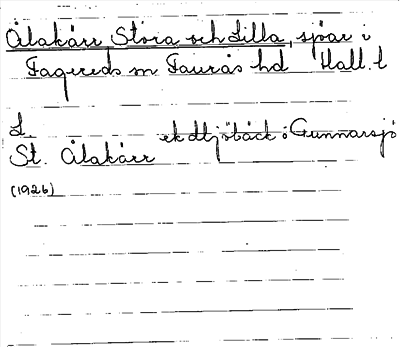 Ålakärr Stora och Lilla, sjöar i
Fagereds sn Faurås hd Hall. l
L.
St. Ålakärr ek dt Gunnarsjö
(1926)